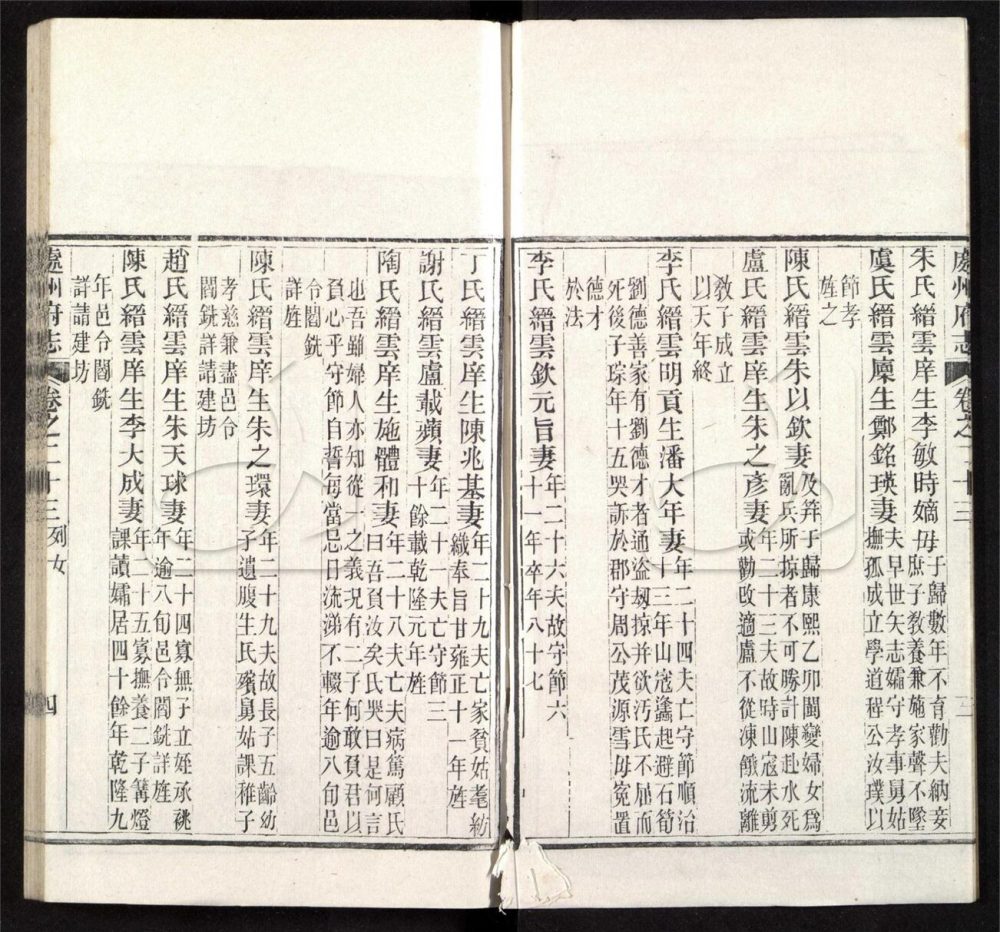 處州府志 卷之二十三 三
朱氏縉雲庠生李敏時嫡母
子歸數年不育勸夫納妾
庶子教養兼施家聲不墜
虞氏縉雲廩生鄭銘瑛妻
夫早世矢志孀守孝事舅姑
撫孤成立學道程公汝璞以
節孝
旌之
陳氏縉雲朱以欽妻
及笄于歸康熙乙卯閩變婦女爲
亂兵所掠者不可勝計陳赴水死
盧氏縉雲庠生朱之彥妻
年二十三夫故時山寇未剪
或勸改適盧不從凍餓流離
敎子成立
以天年終
李氏縉雲明貢生潘大年妻
年二十四夫亡守節順治
十三年山寇蠭起避石筍
劉德善家有劉德才者通盜刼掠并欲汚氏不屈而
死後子琮年十五哭訴於郡守周公茂源雪母冤置
德才
於法
李氏縉雲欽元旨妻
年二十六夫故守節六
十一年卒年八十七
丁氏縉雲庠生陳兆基妻
年二十九夫亡家貧姑耄紡
織奉旨甘雍正十一年旌
謝氏縉雲盧載蘋妻
年二十一夫亡守節三
十餘載乾隆元年旌
陶氏縉雲庠生施體和妻
年二十八夫亡夫病篤顧氏
曰吾負汝矣氏哭曰是何言
也吾雖婦人亦知從一之義況有二子何敢負君以
負心乎守節自誓每當忌日流涕不輟年逾八旬邑
令閻銑
詳旌
陳氏縉雲庠生朱之環妻
年二十九夫故長子五齡幼
子遺腹生氏殯舅姑課稚子
孝慈兼盡邑令
閻銑詳請建坊
趙氏縉雲庠生朱天球妻
年二十四寡無子立姪承祧
年逾八旬邑令閻銑詳旌
陳氏縉雲庠生李大成妻
年二十五寡撫養二子篝燈
課讀孀居四十餘年乾隆九
年邑令閻銑
詳請建坊
處州府志 卷之二十三 列女 四